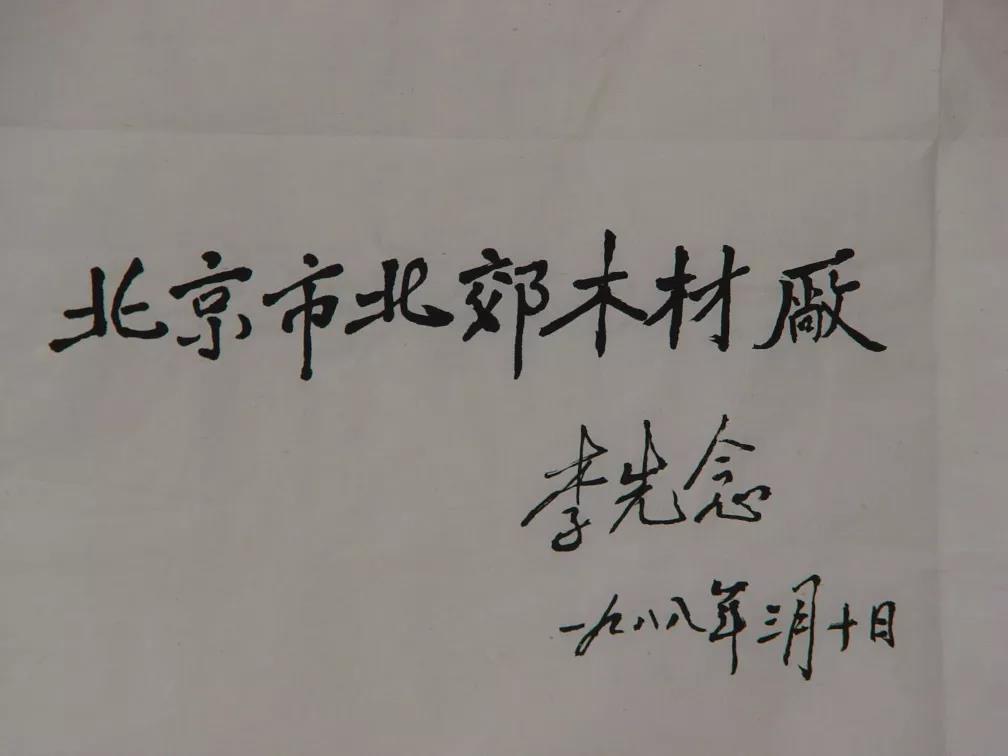 北京市北郊木材廠
李先念
一九八八年三月十日